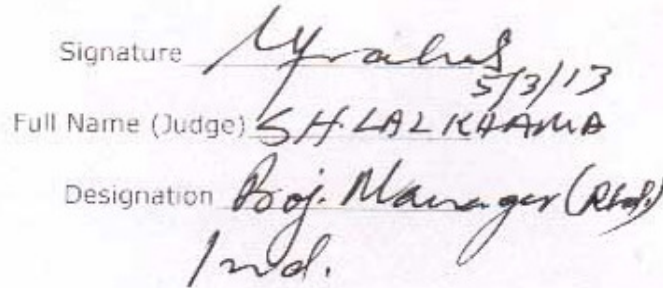 Signature
5/3/13
Full Name (Judge) S H. LAL KHAMA
Designation Proj. Manager (Retd.)
Ind.